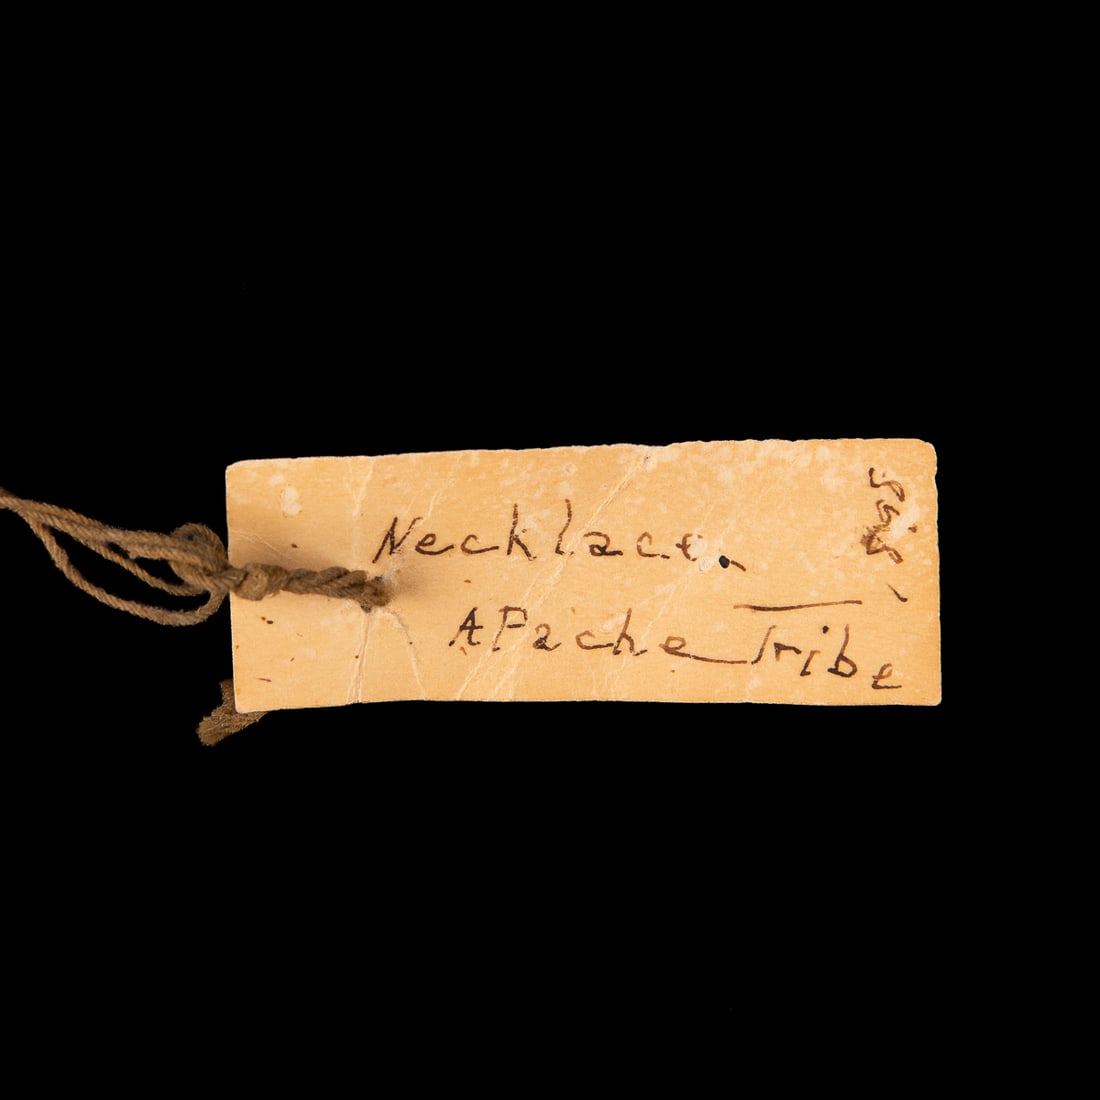 Necklace.
APache Tribe